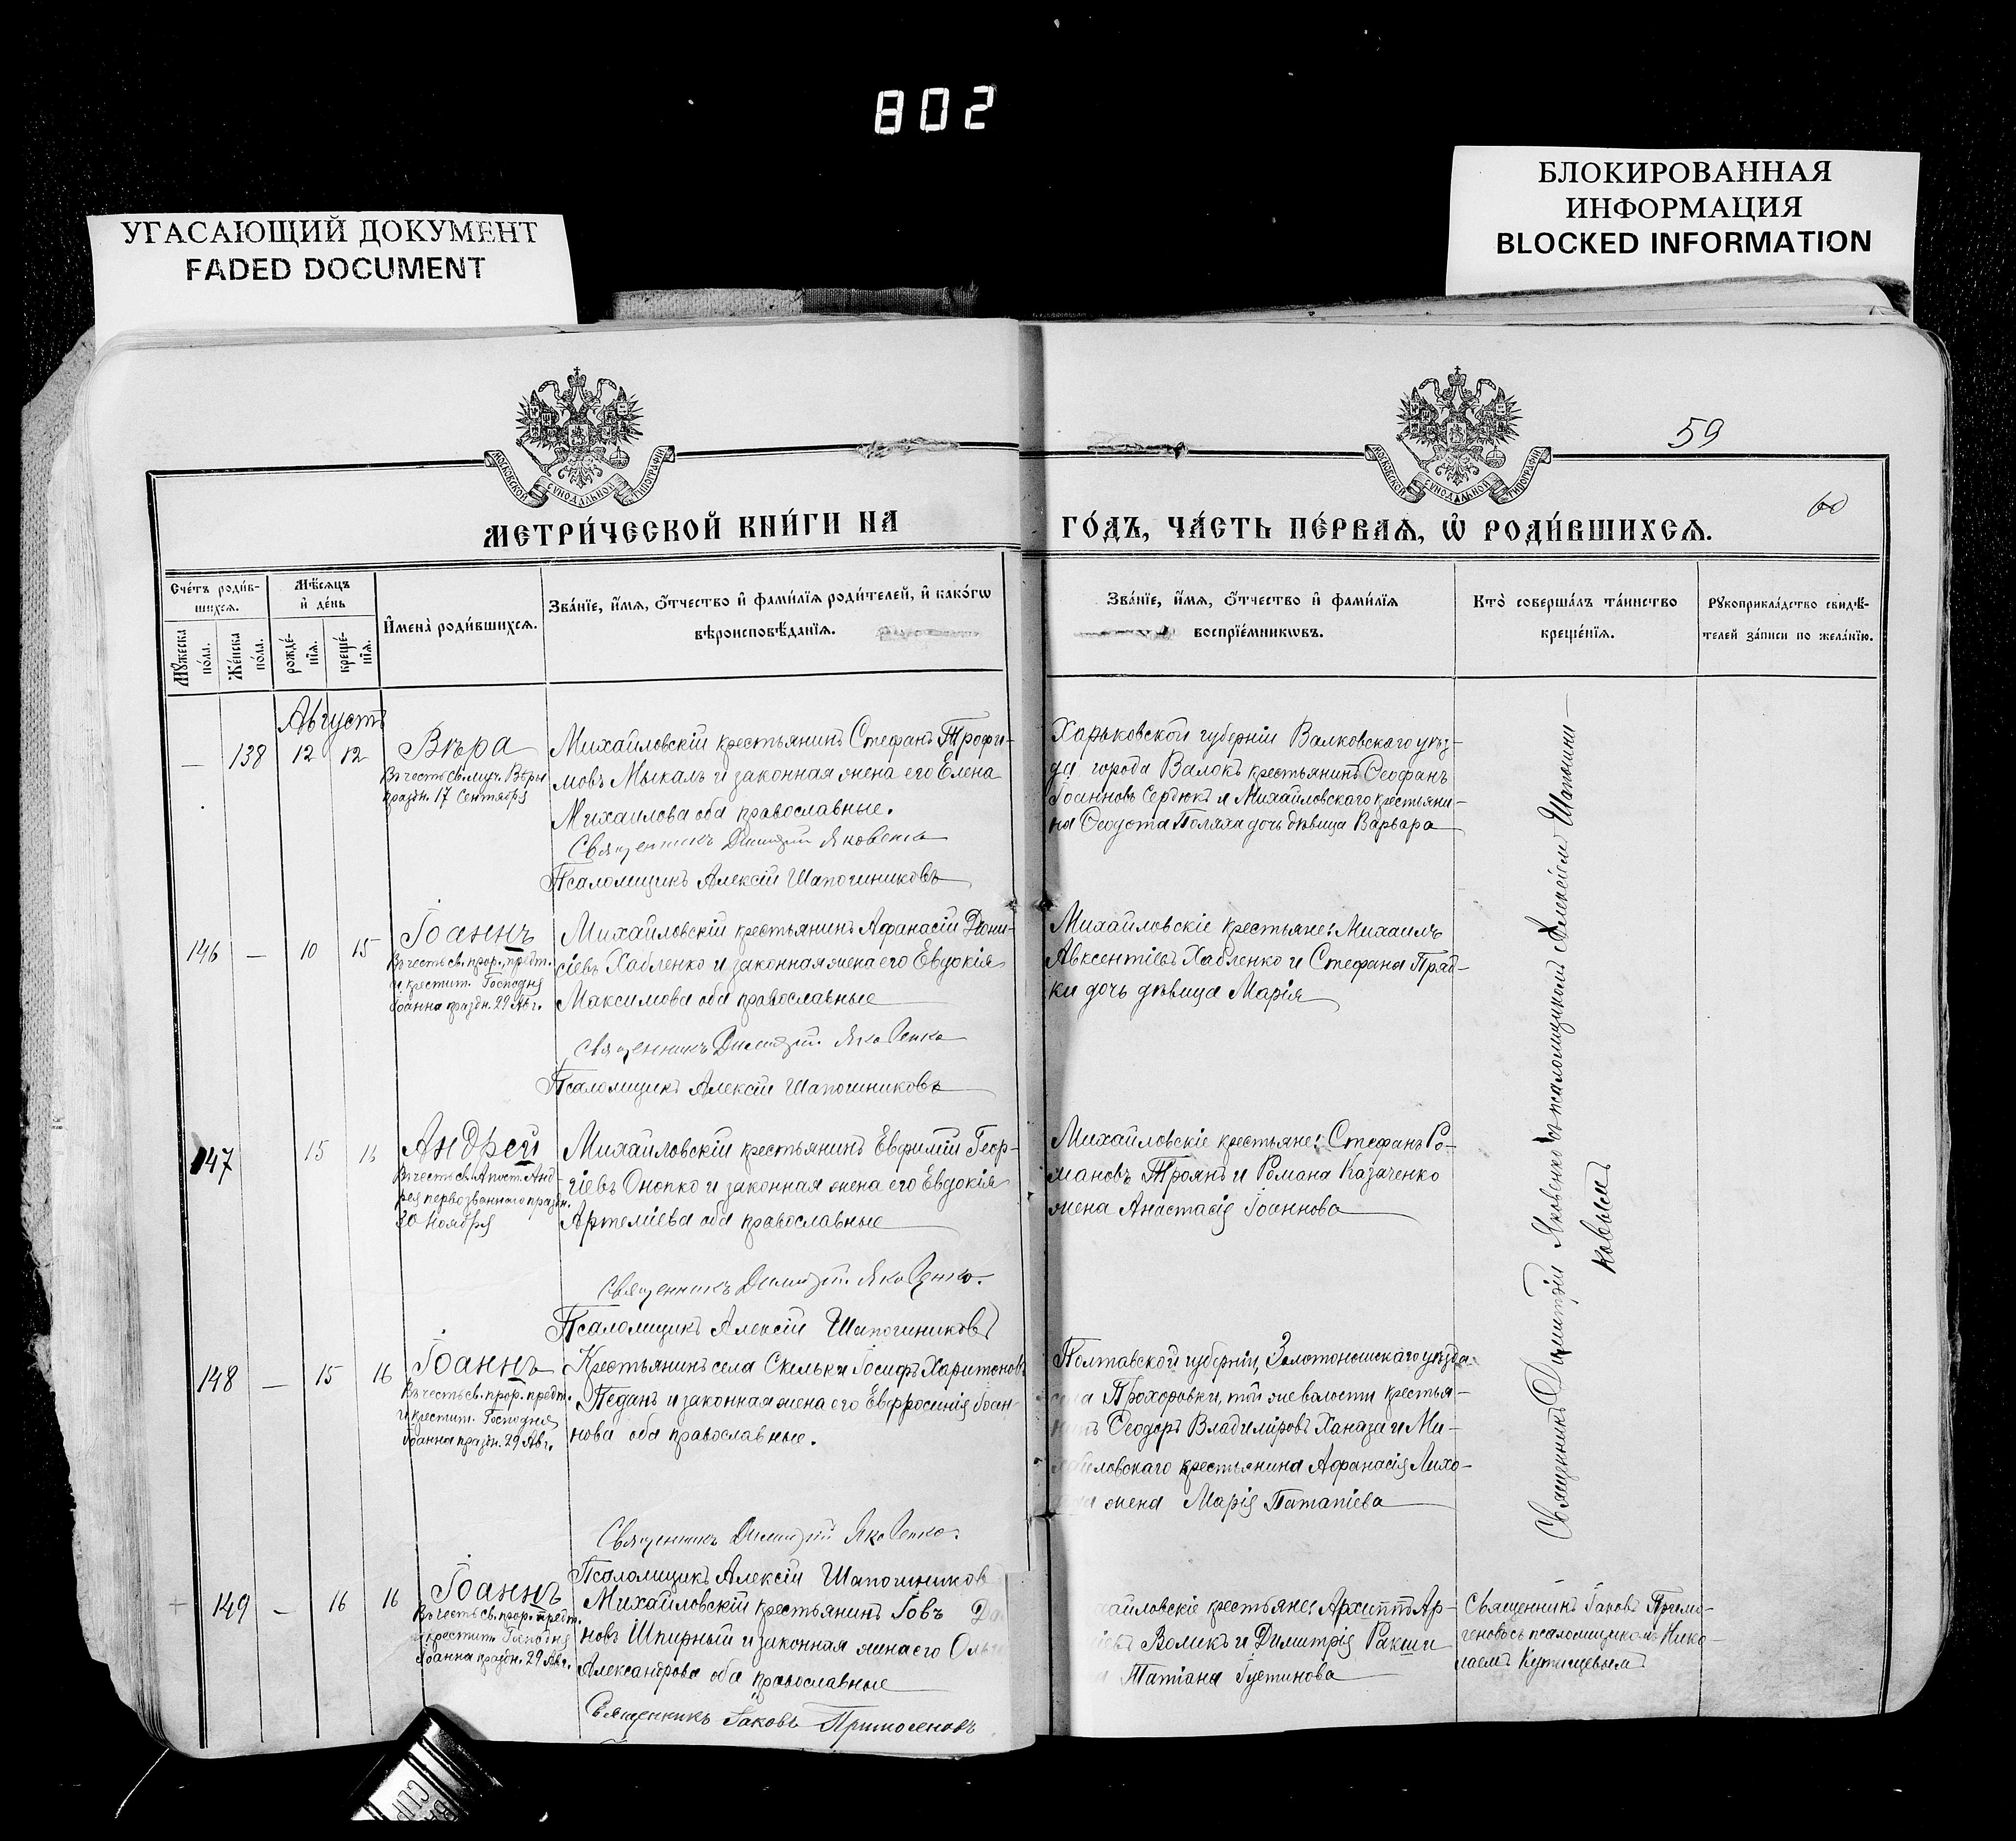 802
УГАСАЮЩИЙ ДОКУМЕНТ
FADED DOCUMENT
БЛОКИРОВАННАЯ
ИНФОРМАЦИЯ
BLOCKED INFORMATION
МОСКОВСКОЙ СѴНОДАЛЬНОЙ ТИПОГРАФІИ
МОСКОВСКОЙ СѴНОДАЛЬНОЙ ТИПОГРАФІИ
59
60
МЕТРИ́ЧЕСКОЙ КНИ́ГИ НА ГО́ДЪ, ЧА́СТЬ ПЕ́РВАѦ, Ѡ҆ РОДИ́ВШИХСѦ.
Сче́тъ роди́в-
шихсѧ.
Мꙋ́жеска
по́ла.
Же́нска
по́ла.
Мѣ́сѧцъ
и҆ де́нь
рожде́-
нїѧ.
креще́-
нїѧ.
И҆мена̀ роди́вшихсѧ.
Зва́нїе, и҆́мѧ, ѻ҆́тчество и҆ фами́лїѧ роди́телей, и҆ како́гѡ
вѣроисповѣ́данїѧ.
Зва́нїе, и҆́мѧ, ѻ҆́тчество и҆ фами́лїѧ
воспрїе́мникѡвъ.
Кто̀ соверша́лъ та́инство
креще́нїѧ.
Рꙋкоприкла́дство свидѣ́-
телей за́писи по жела́нїю.
Августъ
— 138 12 12
Вѣра
Въ честь св. муч. Вѣры
праздн. 17 Сентября
Михайловскій крестьянинъ Стефанъ Трофи-
мовъ Мыкалъ и законная жена его Елена
Михаилова оба православные.
Священникъ Димитрій Яковенко
Псаломщикъ Алексій Шапошниковъ
Харьковской губерніи Валковскаго уѣз-
да города Валокъ крестьянинъ Ѳеофанъ
Іоанновъ Сердюкъ и Михайловскаго крестьяни-
на Ѳеодота Поляха дочь дѣвица Варвара
146 — 10 15
Іоаннъ
Въ честь св. прор., предт.
и крестит. Господня
Іоанна праздн. 29 Авг.
Михайловскій крестьянинъ Афанасій Діони-
сіевъ Хабленко и законная жена его Евдокія
Максимова оба православные
Священникъ Димитрій Яковенко
Псаломщикъ Алексій Шапошниковъ
Михайловскіе крестьяне: Михаилъ
Авксентіевъ Хабленко и Стефана Пряд-
ки дочь дѣвица Марія
147 15 16
Андрей
Въ честь св. Апост. Анд-
рея первозваннаго праздн.
30 Ноября
Михайловскій крестьянинъ Евфимій Геор-
гіевъ Онопко и законная жена его Евдокія
Артеміева оба православные
Священникъ Димитрій Яковенко.
Псаломщикъ Алексій Шапошниковъ
Михайловскіе крестьяне: Стефанъ Ро-
мановъ Троянъ и Романа Казаченко
жена Анастасія Іоаннова
148 — 15 16
Іоаннъ
Въ честь св. прор. предт.
и крестит. Господня
Іоанна праздн. 29 Авг.
Крестьянинъ села Скельки Іосифъ Харитоновъ
Педанъ и законная жена его Евфросинія Іоан-
нова оба православные.
Священникъ Димитрій Яковенко.
Псаломщикъ Алексій Шапошников
Полтавской губерніи, Золотоношскаго уѣзда
села Прохоровки, той же волости крестья-
нинъ Ѳеодоръ Владиміровъ Ханаза и Ми-
хайловскаго крестьянина Афанасія Лихо-
жена Марія Патапіева
149 — 16 16
Іоаннъ
Въ честь св. прор. предт.
и крестит. Господня
Іоанна праздн. 29 Авг.
Михайловскій крестьянинъ Іовъ
новъ Шпирный и законная жена его Ольг
Александрова оба православные
Священникъ Іаковъ Примогеновъ
хайловскіе крестьяне: Архиппъ Ар-
Воликъ и Димитрія Ракши
Татіана Іустинова
Священникъ Димитрій Яковенко съ псаломщикомъ Алексіемъ Шапошни-
ковымъ
Священникъ Іаковъ Приmo-
геновъ съ псаломщикомъ Нико-
лаемъ Кутищевымъ